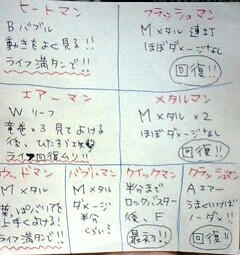 ヒートマン
B バブル
動きをよく見る!!
ライフ満タンで!!
フラッシュマン
Mメタル 連打
ほぼダメージなし
回復!!
エアーマン
W リーフ
竜巻×3 見てよける
後、ひたすら攻撃
ライフ回復ムリ!!
メタルマン
Mメタル ×2
ほぼダメージなし
回復!!
ウッドマン
Mメタル
葉っぱバリアを
上手くよける!
ライフ満タンで!!
バブルマン
Mメタル
ダメージ
半分
くらい?
クイックマン
半分まで
ロックバスター
後、F
最えう!!
クラッシュマン
Aエアー
うまくいけば
ノーダメ!!
回復!!